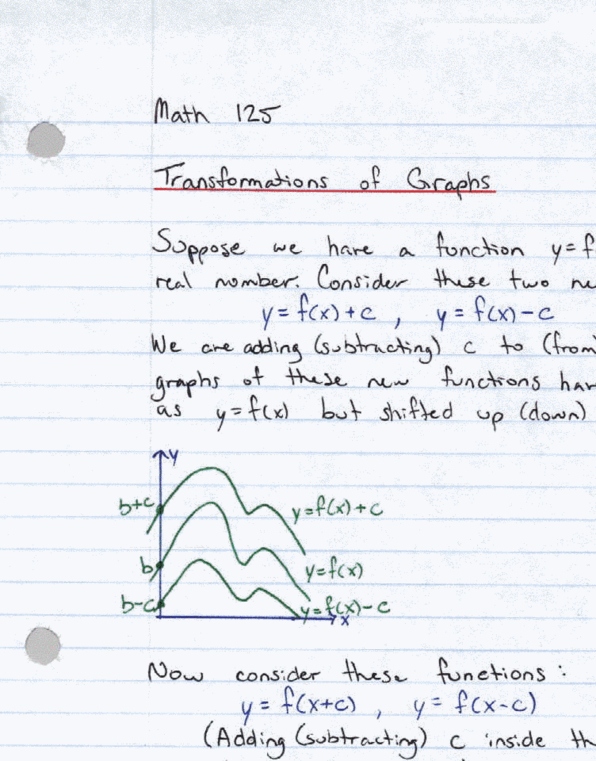 Math 125
Transformations of Graphs
Suppose we have a function y=f
real number. Consider these two ne
y=f(x)+c , y=f(x)-c
We are adding (subtracting) c to (from)
graphs of these new functions hav
as y=f(x) but shifted up (down)
y
b+c y=f(x)+c
b y=f(x)
b-c y=f(x)-c
x
Now consider these functions:
y=f(x+c) , y=f(x-c)
(Adding (subtracting) c inside th